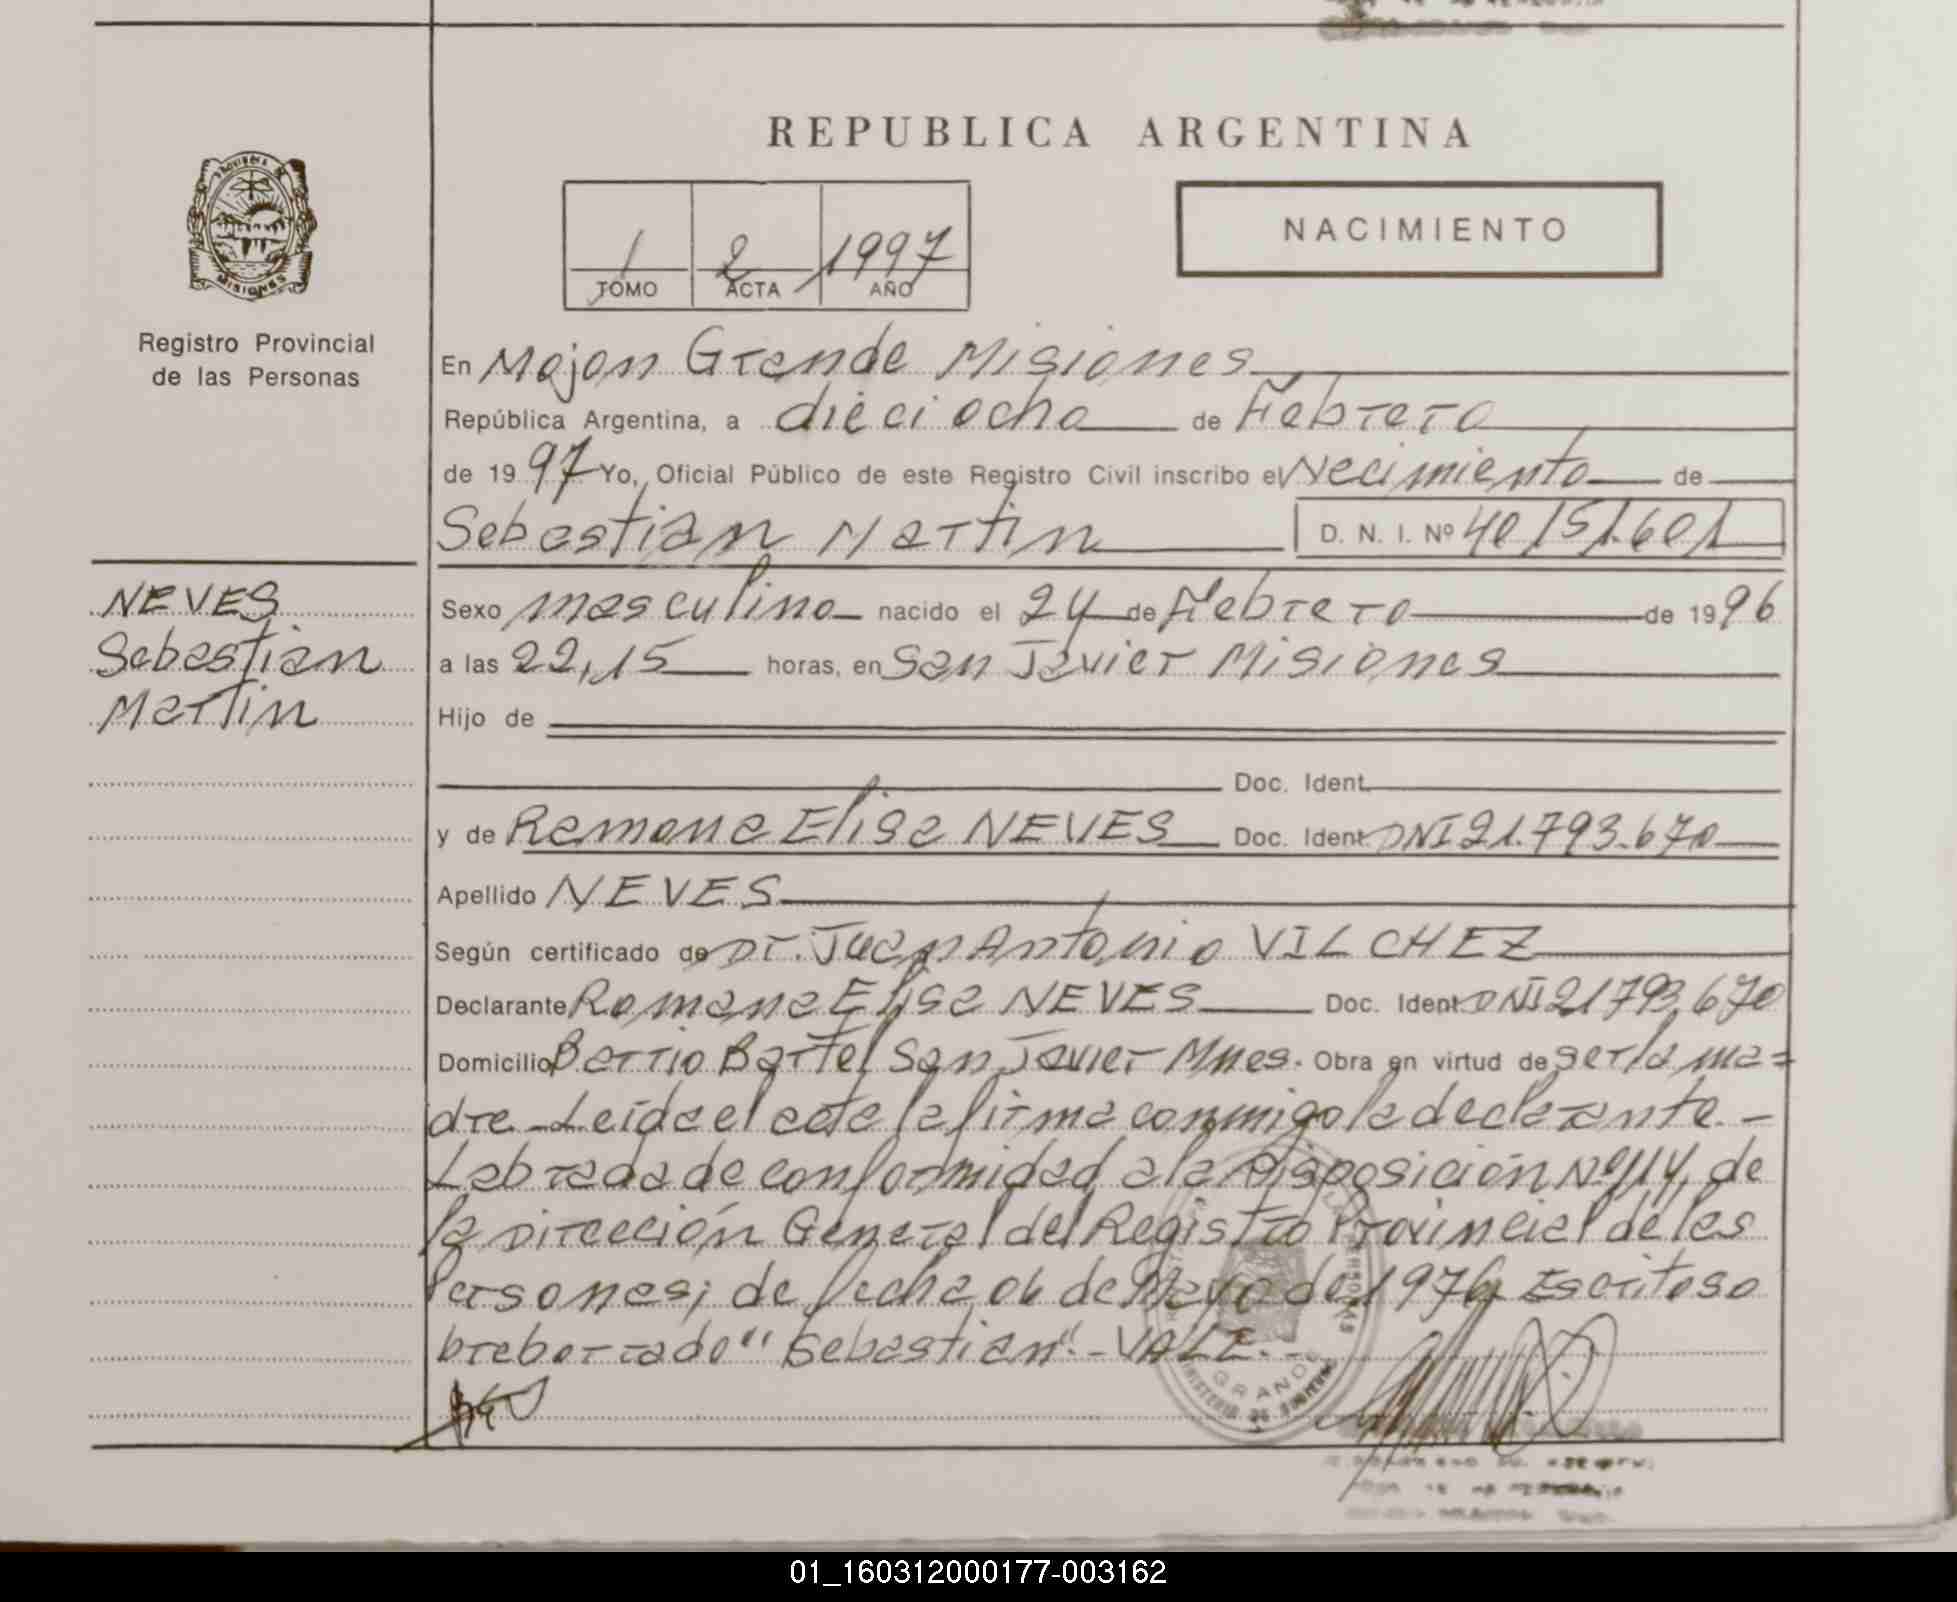 REPUBLICA ARGENTINA
PROVINCIA
MISIONES
Registro Provincial
de las Personas
1 TOMO
2 ACTA
1997 AÑO
NACIMIENTO
En Mojon Grande Misiones
República Argentina, a dieciocho de Febrero
de 1997 Yo, Oficial Público de este Registro Civil inscribo el Nacimiento de
Sebastian Martin D. N. I. Nº 40.151.601
NEVES
Sebastian
Martin
Sexo masculino nacido el 24 de Febrero de 1996
a las 22,15 horas, en San Javier Misiones
Hijo de
Doc. Ident.
y de Ramona Elisa NEVES Doc. Ident. DNI 21.793.670
Apellido NEVES
Según certificado de Dr. Juan Antonio VILCHEZ
Declarante Romana Elisa NEVES Doc. Ident. DNI 21793.670
Domicilio Barrio Bartel San Javier Mnes. Obra en virtud de ser la ma=
dre.-Leída el acta la firma conmigo la declarante.-
Labrada de conformidad a la Disposición Nº 114, de
la Dirección General del Registro Provincial de las
Personas; de fecha 06 de Mayo de 1976, Escrito so
breborrado "Sebastian".-VALE.-
GRANDE
01_160312000177-003162